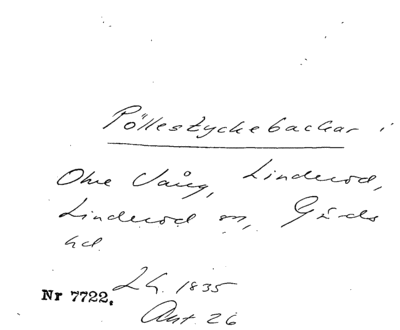 Pöllestyckebackar i
Ohre Vång, Linderöd,
Linderöd sn, Gärds
hd
Nr 7722. LH. 1835
Akt 26